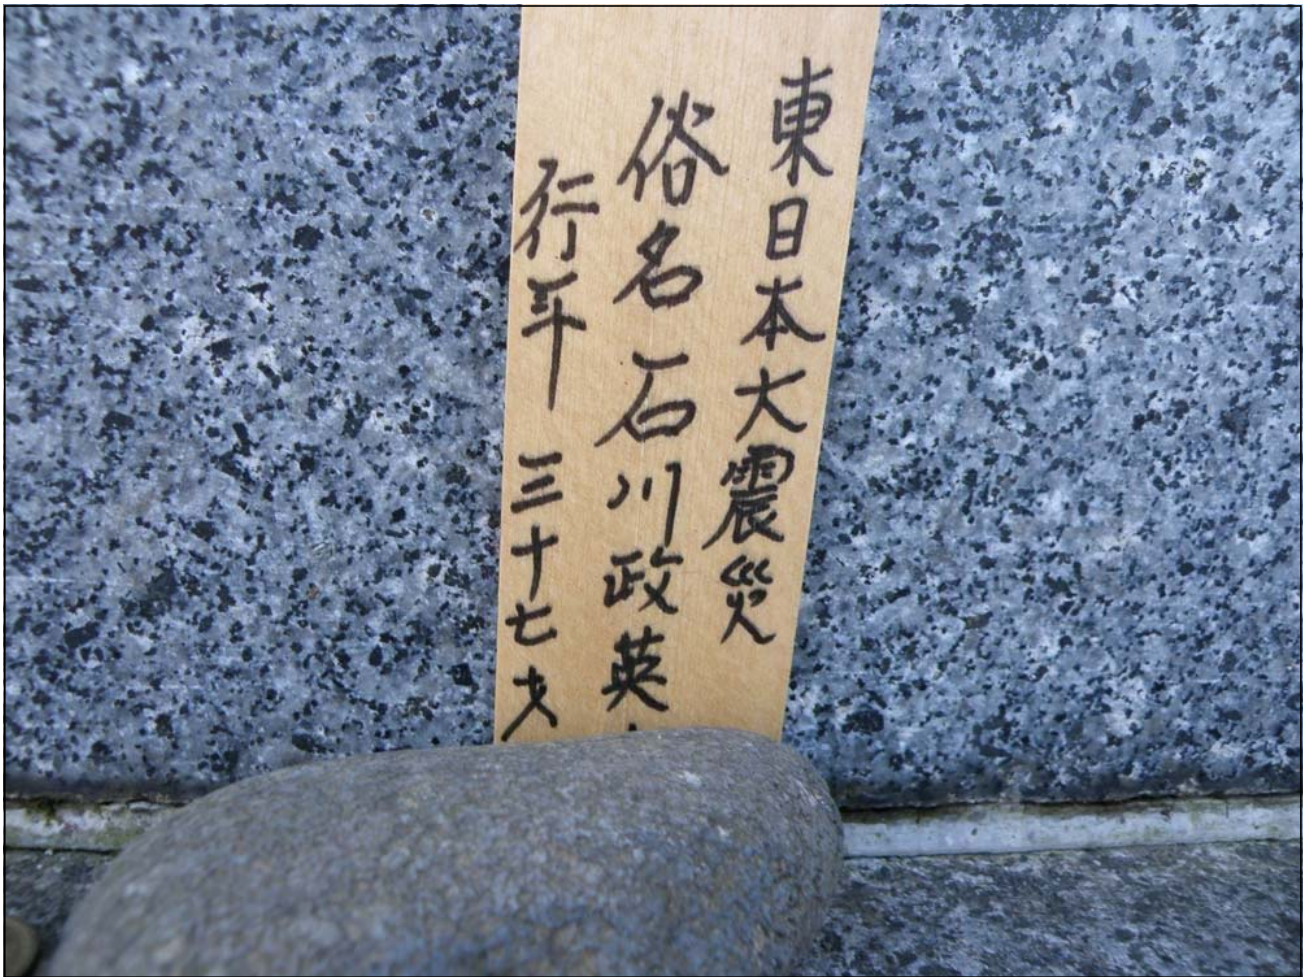 東日本大震災
俗名石川政英
行年 三十七才